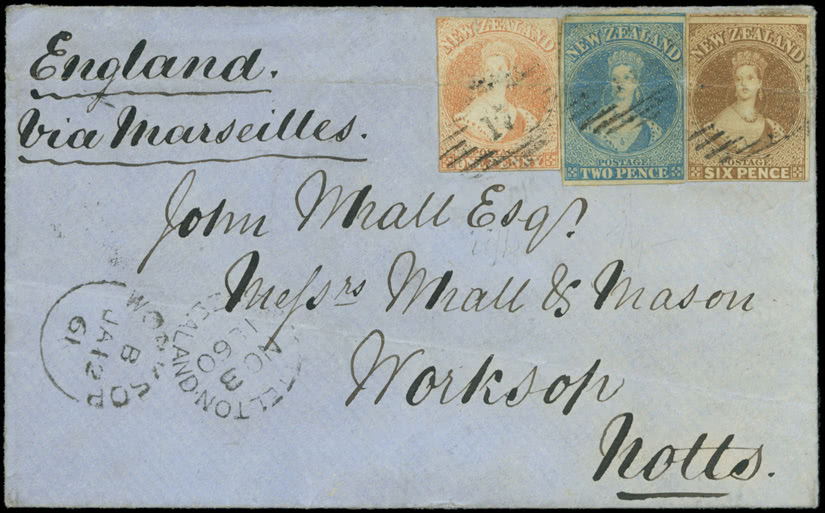 England.
Via Marseilles.
NEW ZEALAND
ONE PENNY
17
NEW ZEALAND
POSTAGE
TWO PENCE
NEW ZEALAND
POSTAGE
SIX PENCE
John Whall Esqr.
Messrs Whall & Mason
Worksop
Notts.
B
JA 12
61
ZEALAND
60